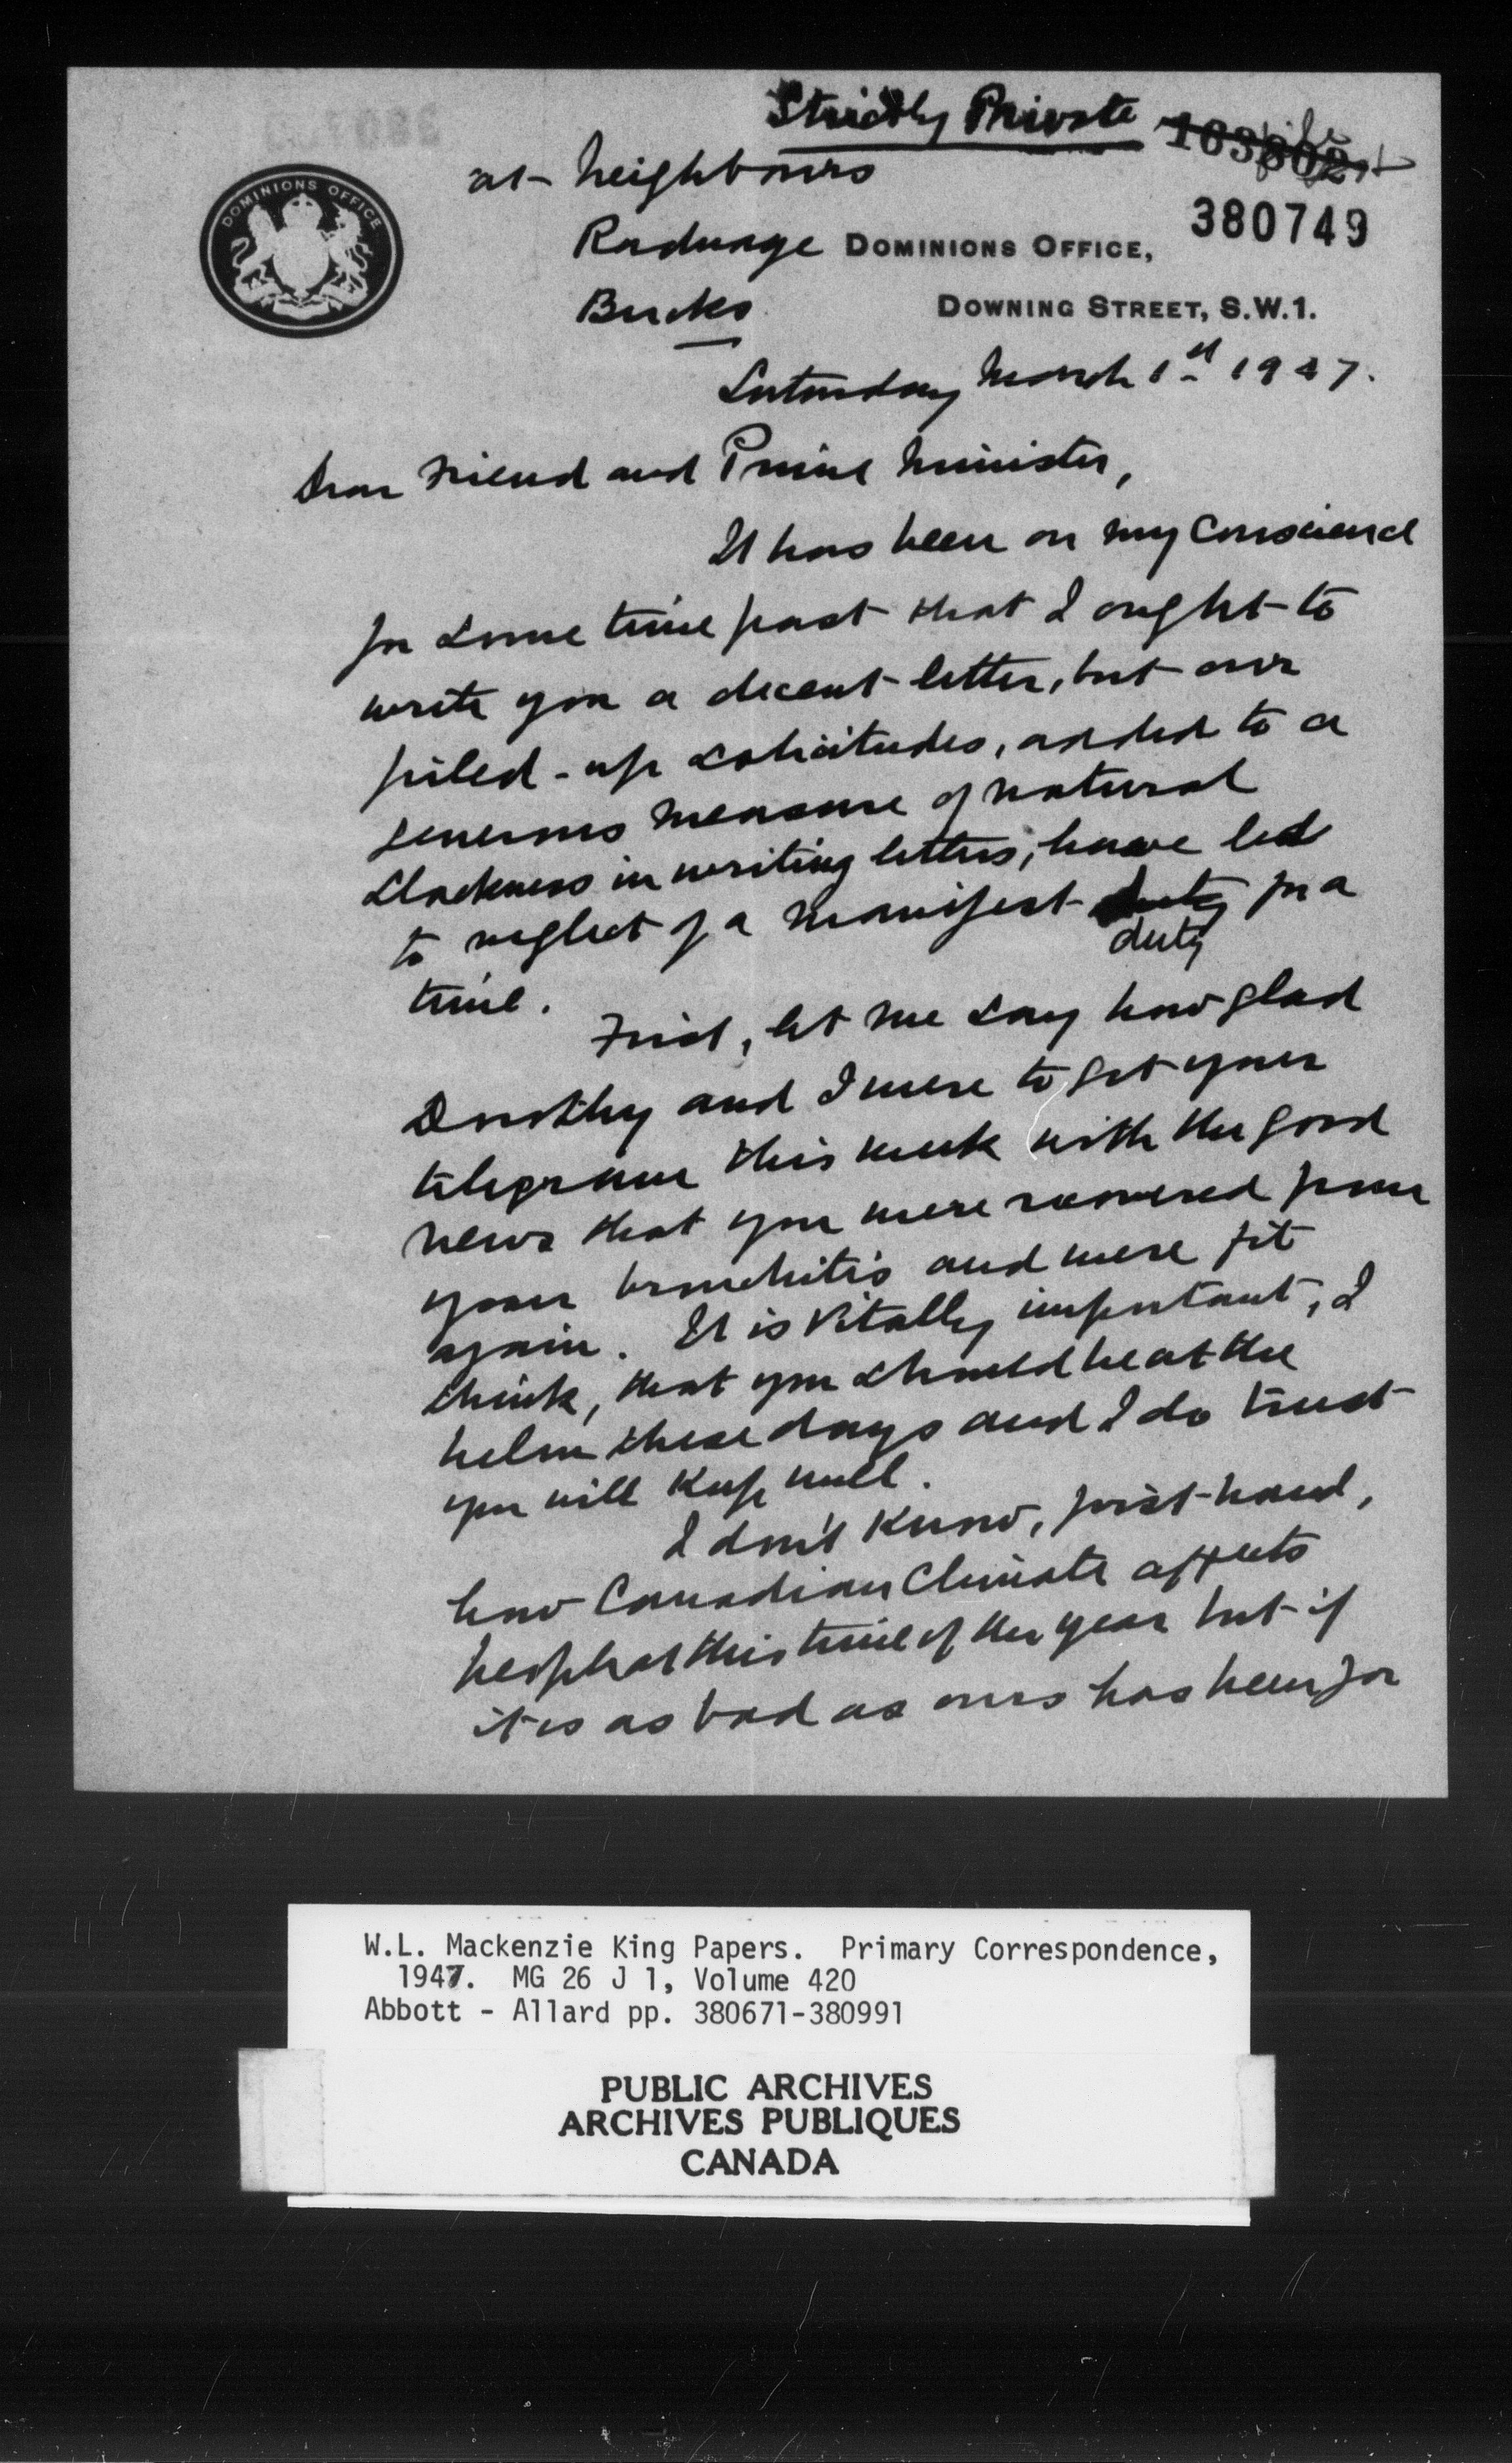 Strictly Private
163802
380749
DOMINIONS OFFICE
at Neighbours
Radnage DOMINIONS OFFICE,
Bucks DOWNING STREET, S.W.1.
Saturday March 1st 1947.
Dear Friend and Prime Minister,
It has been on my conscience
for some time past that I ought to
write you a decent letter, but our
piled-up solicitudes, added to a
generous measure of natural
slackness in writing letters, have led
to neglect of a manifest duty for a
duty
time.
First, let me say how glad
Dorothy and I were to get your
telegram this week with the good
news that you were recovered from
your bronchitis and were fit
again. It is vitally important, I
think, that you should be at the
helm these days and I do trust
you will keep well.
I don't know, first-hand,
how Canadian climate affects
people at this time of the year but if
it is as bad as ours has been for
W.L. Mackenzie King Papers. Primary Correspondence,
1947. MG 26 J 1, Volume 420
Abbott - Allard pp. 380671-380991
PUBLIC ARCHIVES
ARCHIVES PUBLIQUES
CANADA